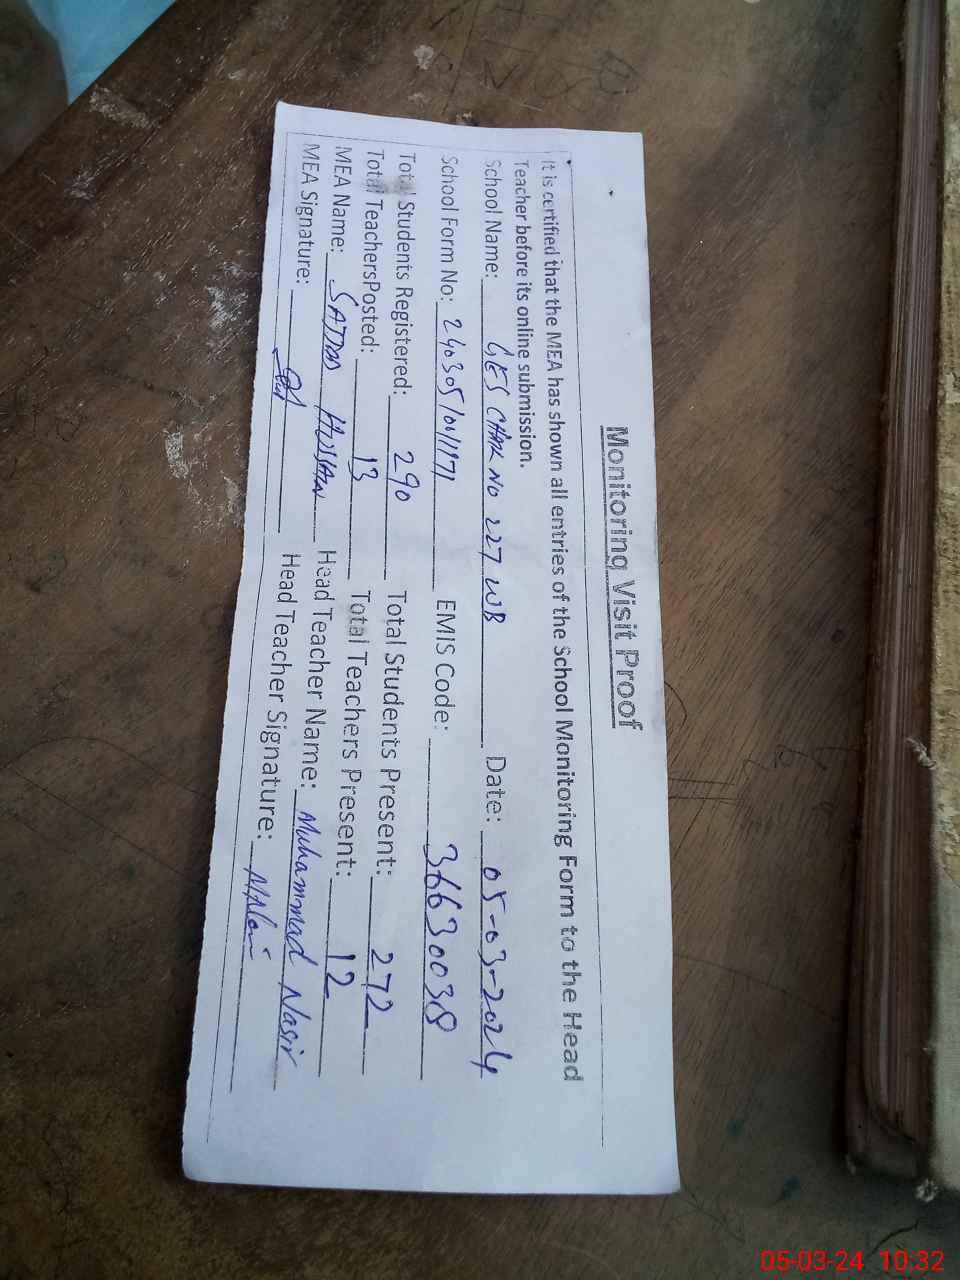 Monitoring Visit Proof
It is certified that the MEA has shown all entries of the School Monitoring Form to the Head
Teacher before its online submission.
School Name: GES CHAK NO 227 WB Date: 05-03-2024
School Form No: EMIS Code: 36630038
Total Students Registered: 290 Total Students Present: 272
Total TeachersPosted: 13 Total Teachers Present: 12
MEA Name: HUSSAIN Head Teacher Name: Muhammad Nasir
MEA Signature: Head Teacher Signature:
05-03-24 10:32